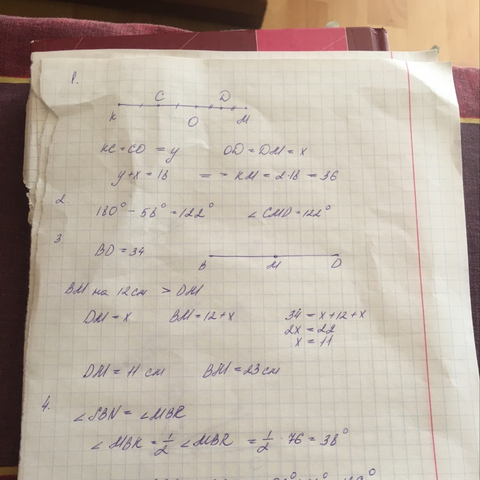 1.
C D
K O M
KC = CO = y OD = DM = x
y + x = 18 = = KM = 2·18 = 36
2 180° - 58° = 122° ∠ CMD = 122°
3
BD = 34
B M D
BM на 12 см > DM
DM = x BM = 12 + x 34 = x + 12 + x
2x = 22
x = 11
DM = 11 см BM = 23 см
4.
∠ SBN = ∠ MBR
∠ MBK = 1/2 ∠ MBR = 1/2 · 76 = 38°